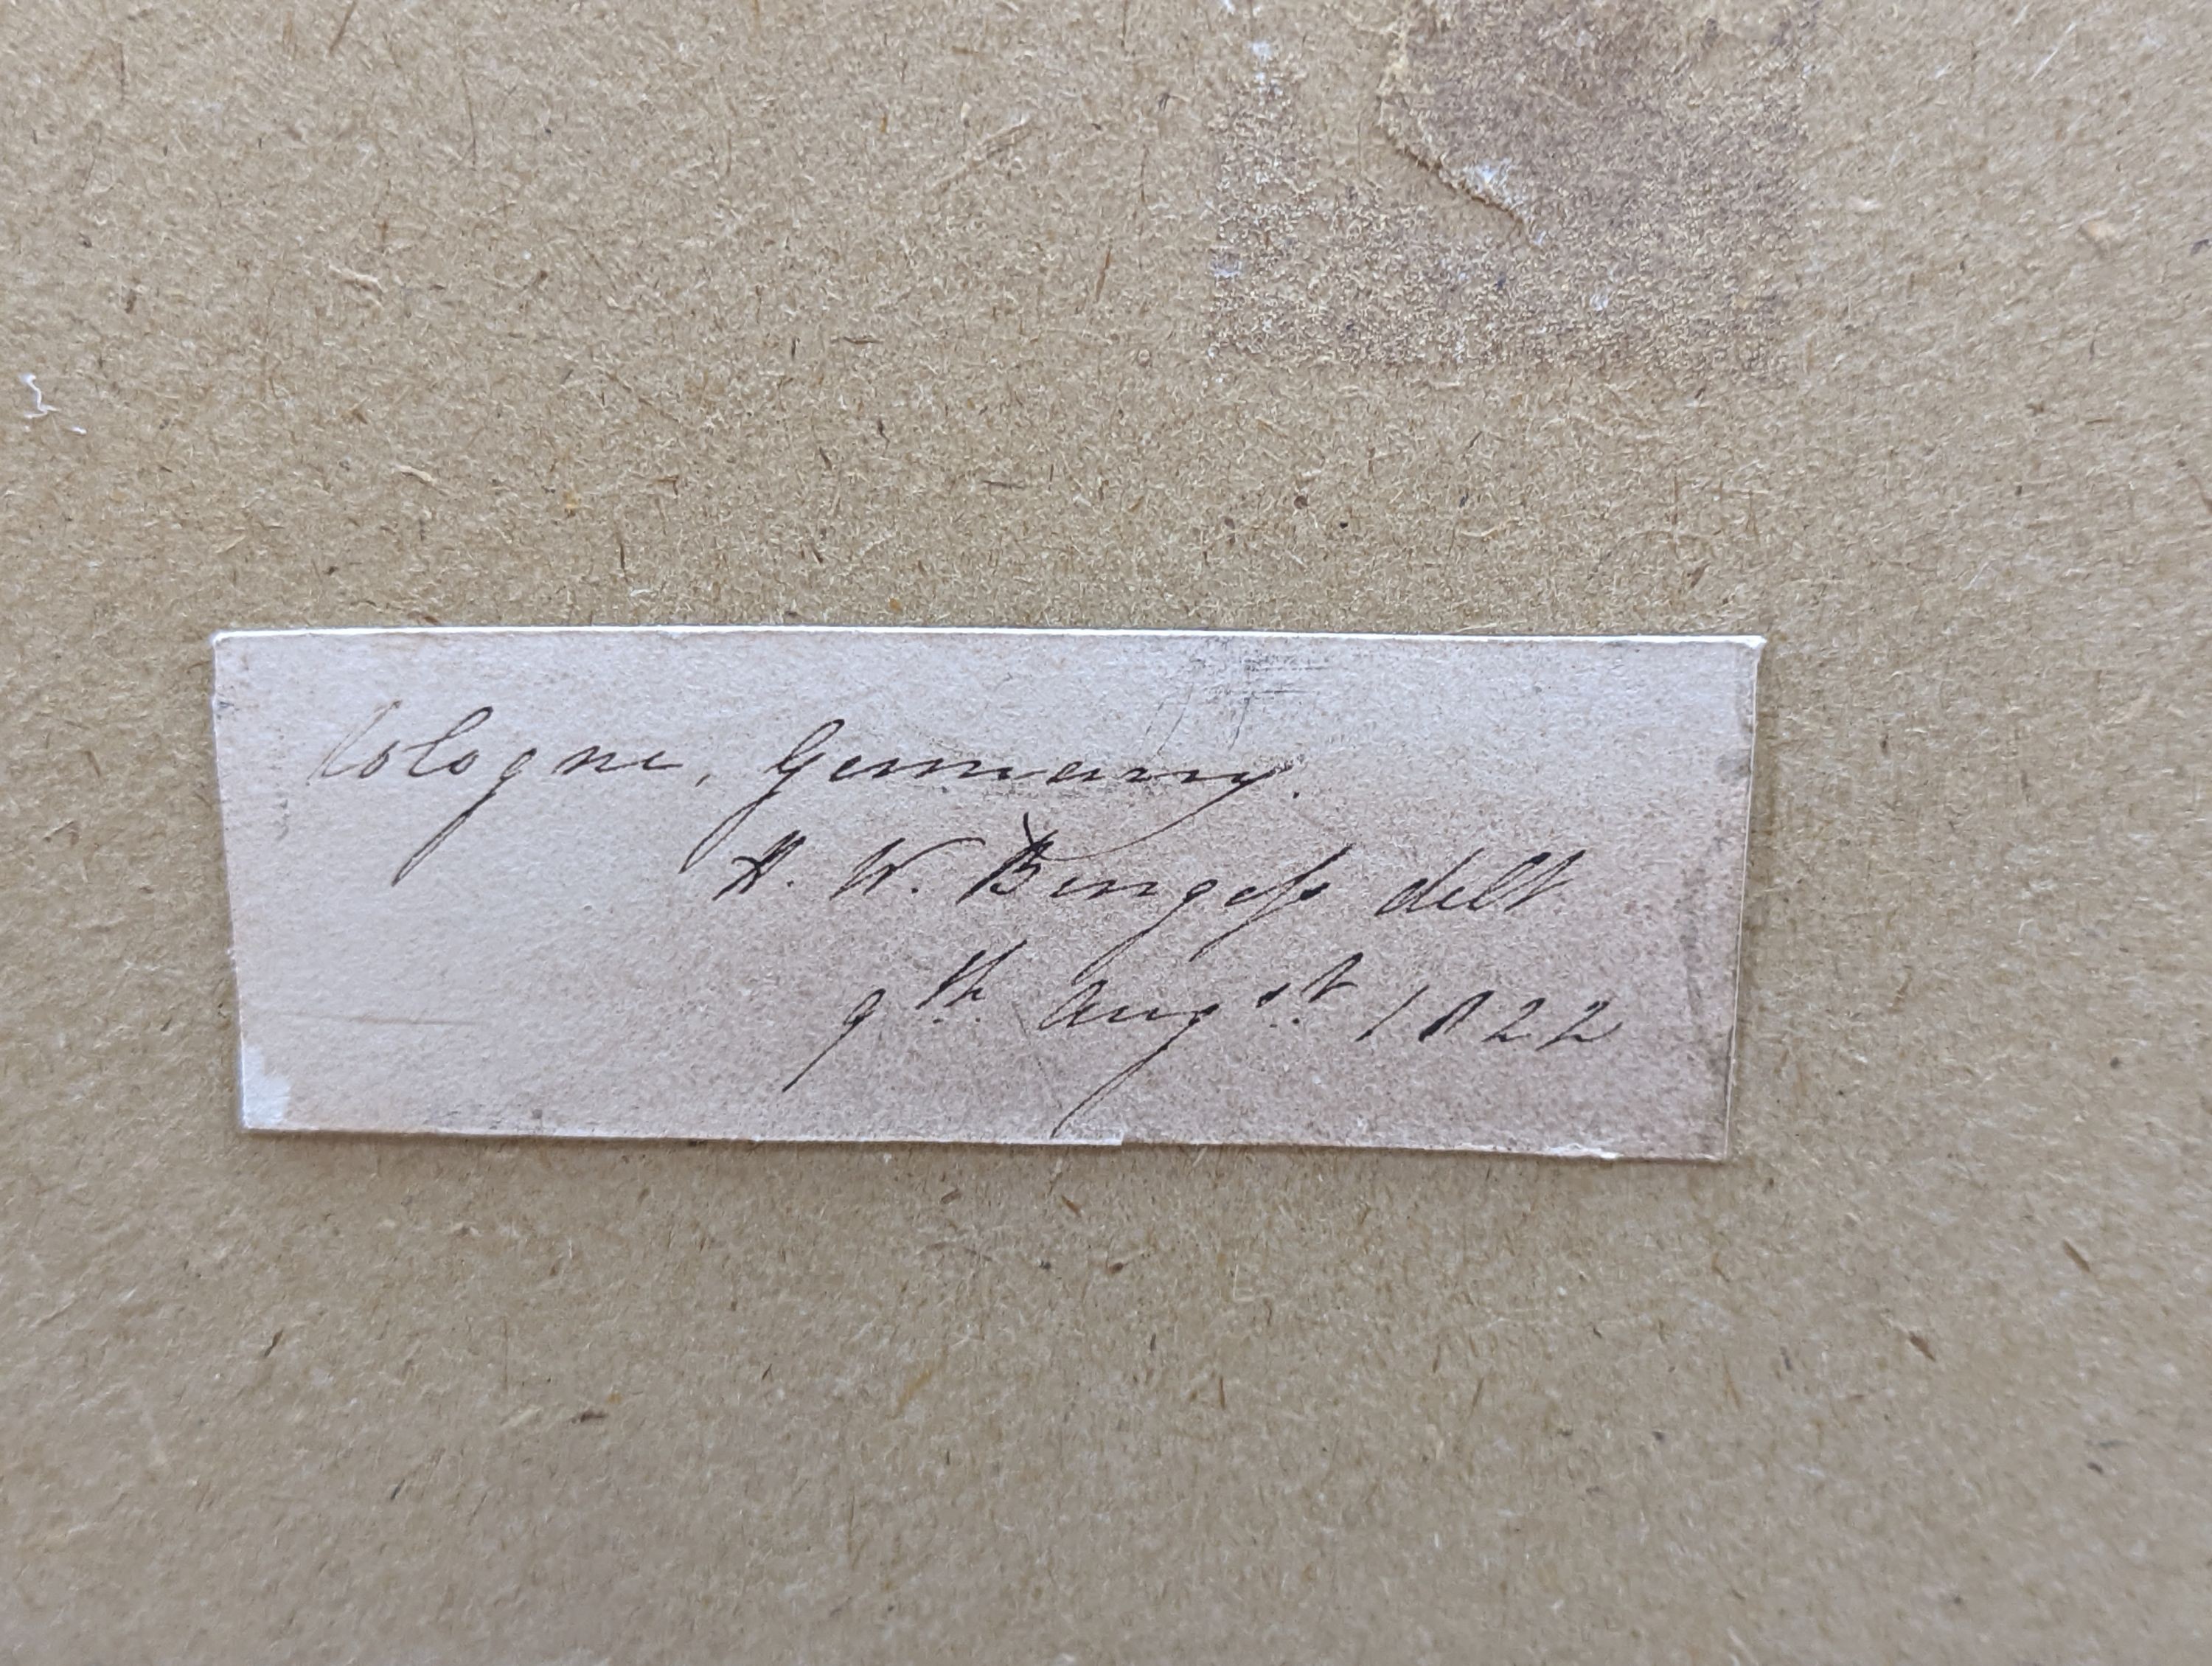 Cologne, Germany.
H. W. Burgess delt
9th. Augst. 1822